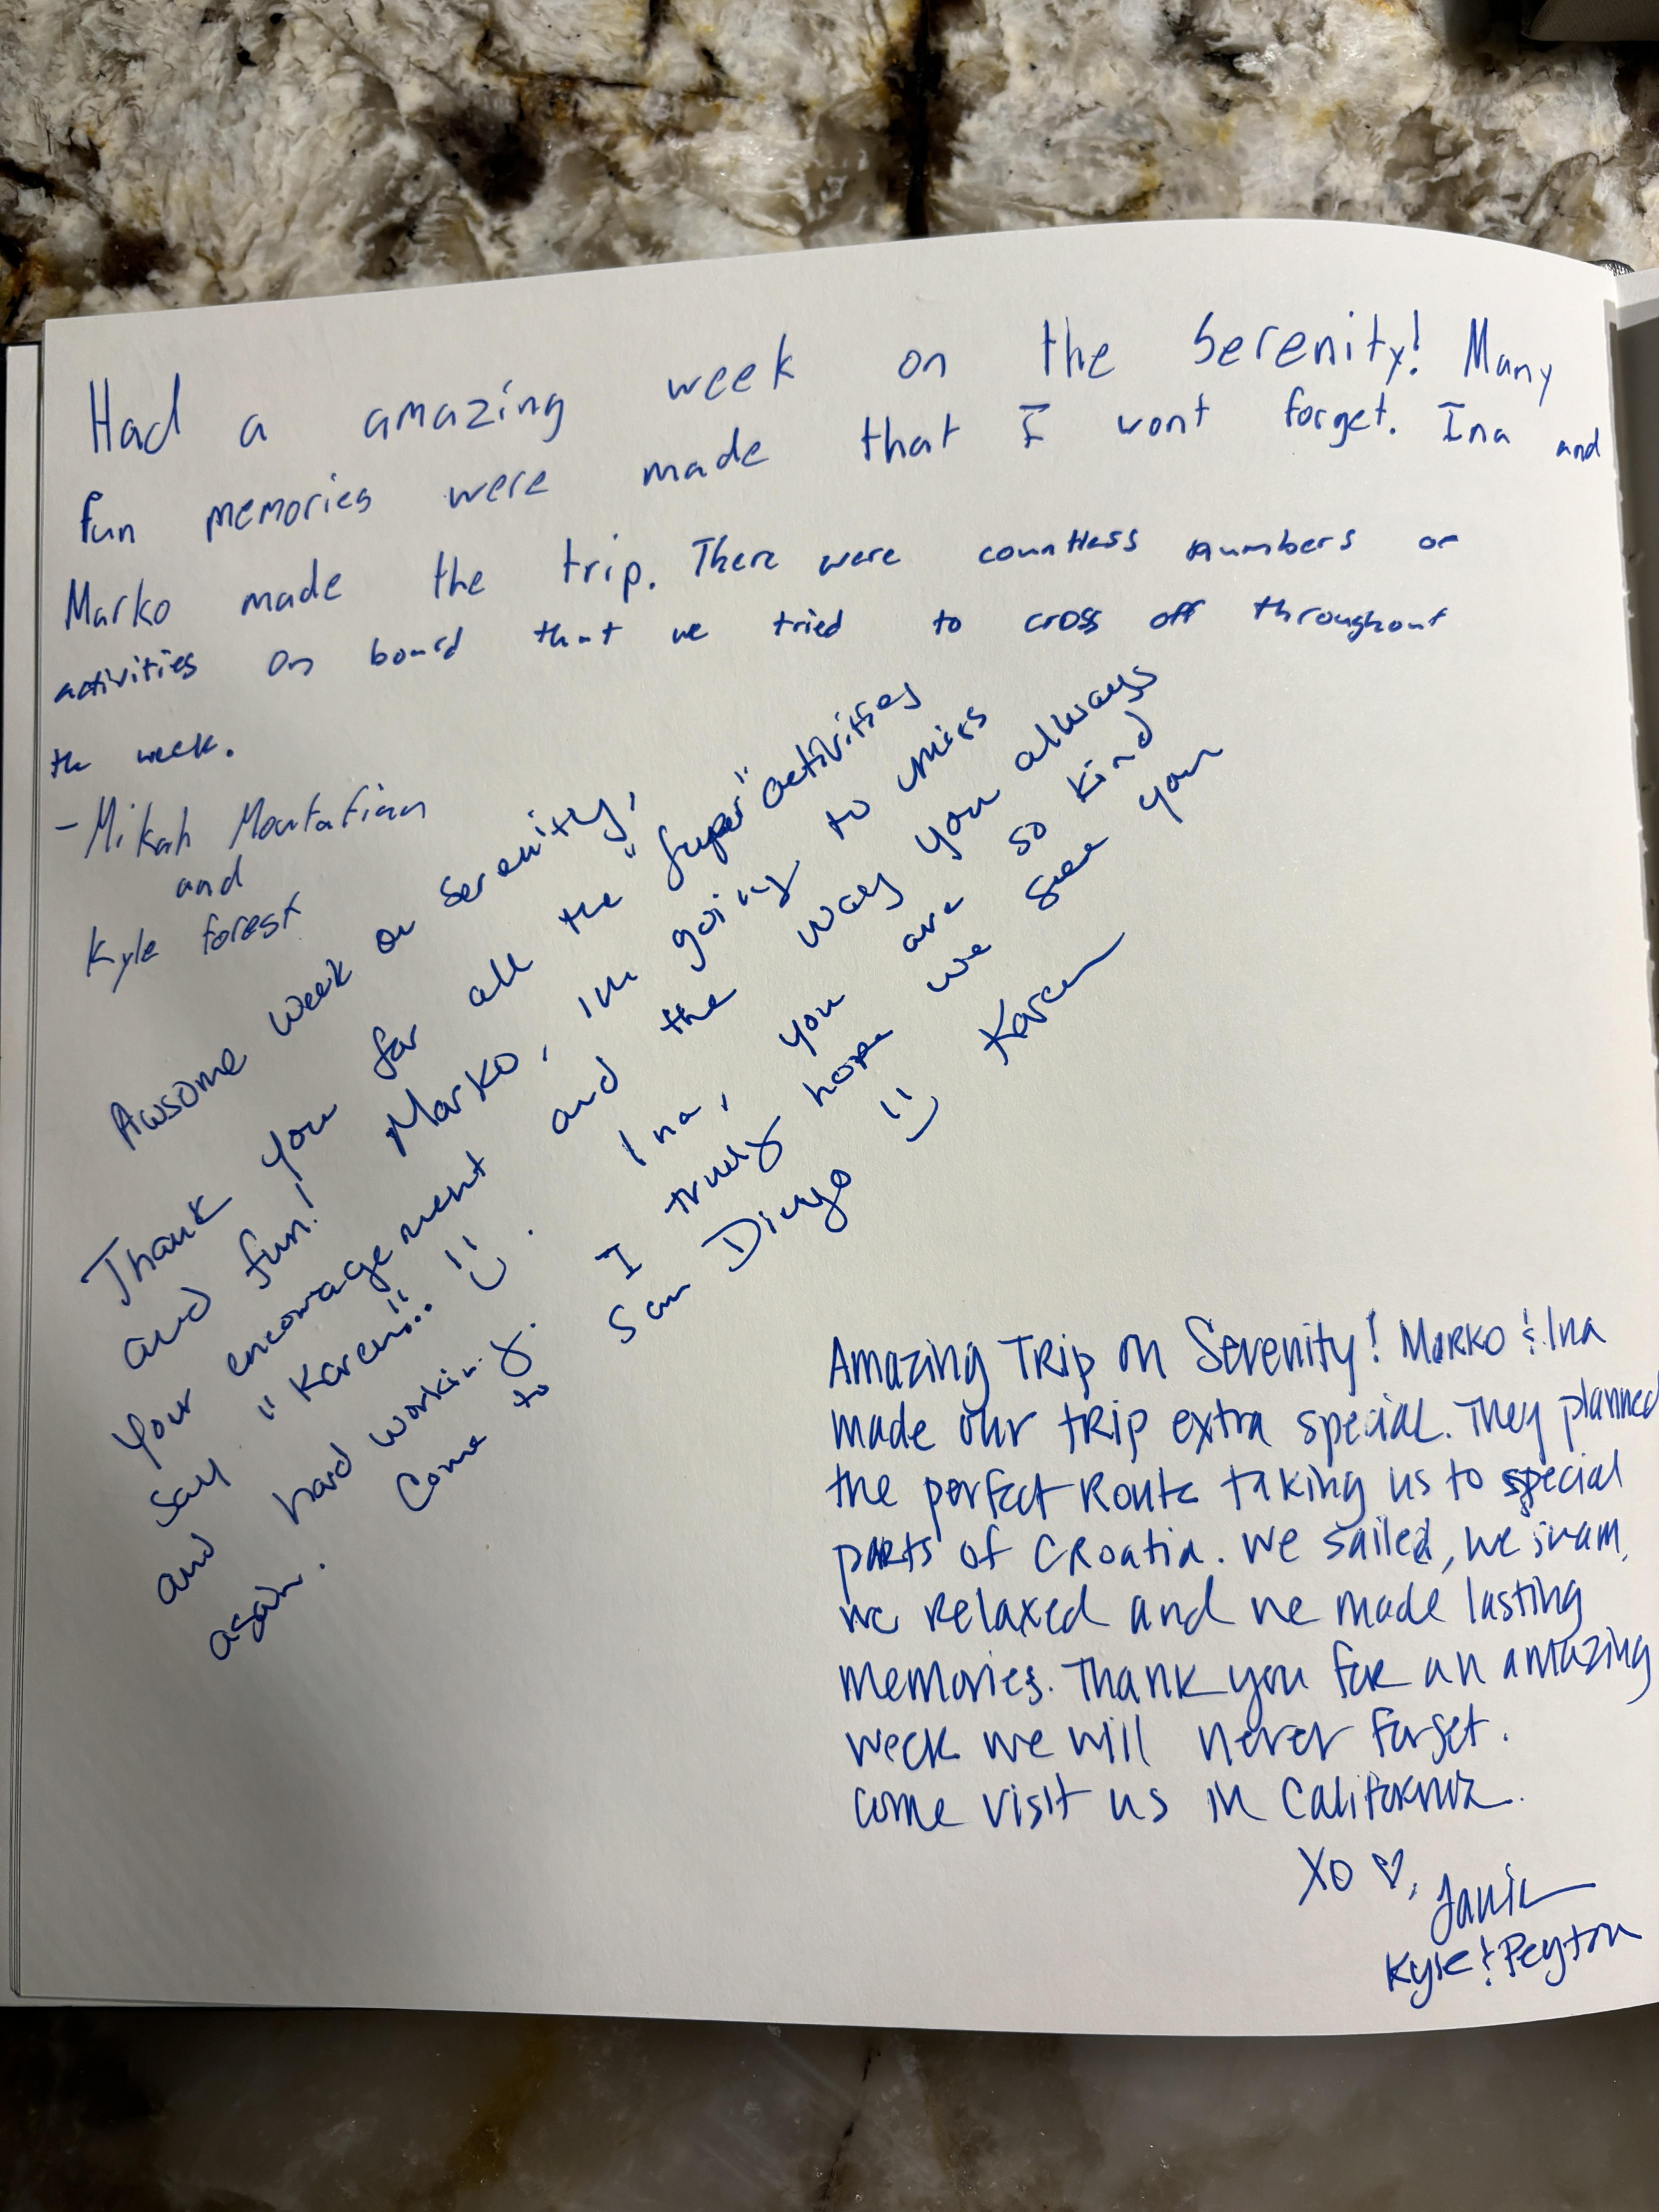 Had a amazing week on the Serenity! Many
fun memories were made that I wont forget. Ina and
Marko made the trip. There were countless numbers of
activities on board that we tried to cross off throughout
the week.
- Mikah
and
Kyle Forest
Awsome week on Serenity,
Thank you for all the "super" activities
and fun! Marko, im going to miss
your encouragement and the way you always
say "Karen!!" Ina, you are so kind
and hard working. I truely hope we see you
again. Come to San Diego Karen
Amazing Trip on Serenity! Marko & Ina
made our trip extra special. They planned
the perfect Route taking us to special
parts of Croatia. We sailed, we swam,
we relaxed and we made lasting
memories. Thank you for an amazing
week we will never forget.
come visit us in California.
XO ♡,
Kyle & Peyton